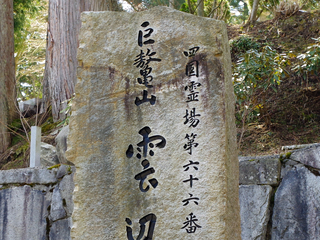 四国霊場第六十六番
巨鼇山 雲辺